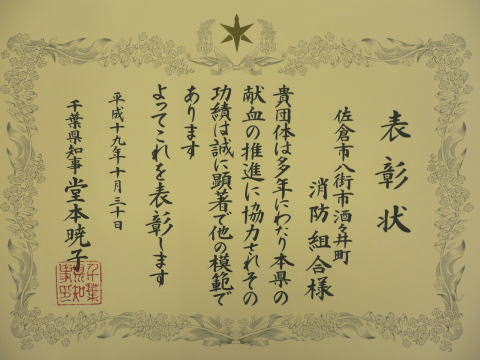 表彰状
佐倉市八街市酒々井町
消防組合様
貴団体は多年にわたり本県の
献血の推進に協力されその
功績は誠に顕著で他の模範で
あります
よってこれを表彰します
平成十九年十月三十日
千葉県知事 堂本暁子
千葉県知事之印